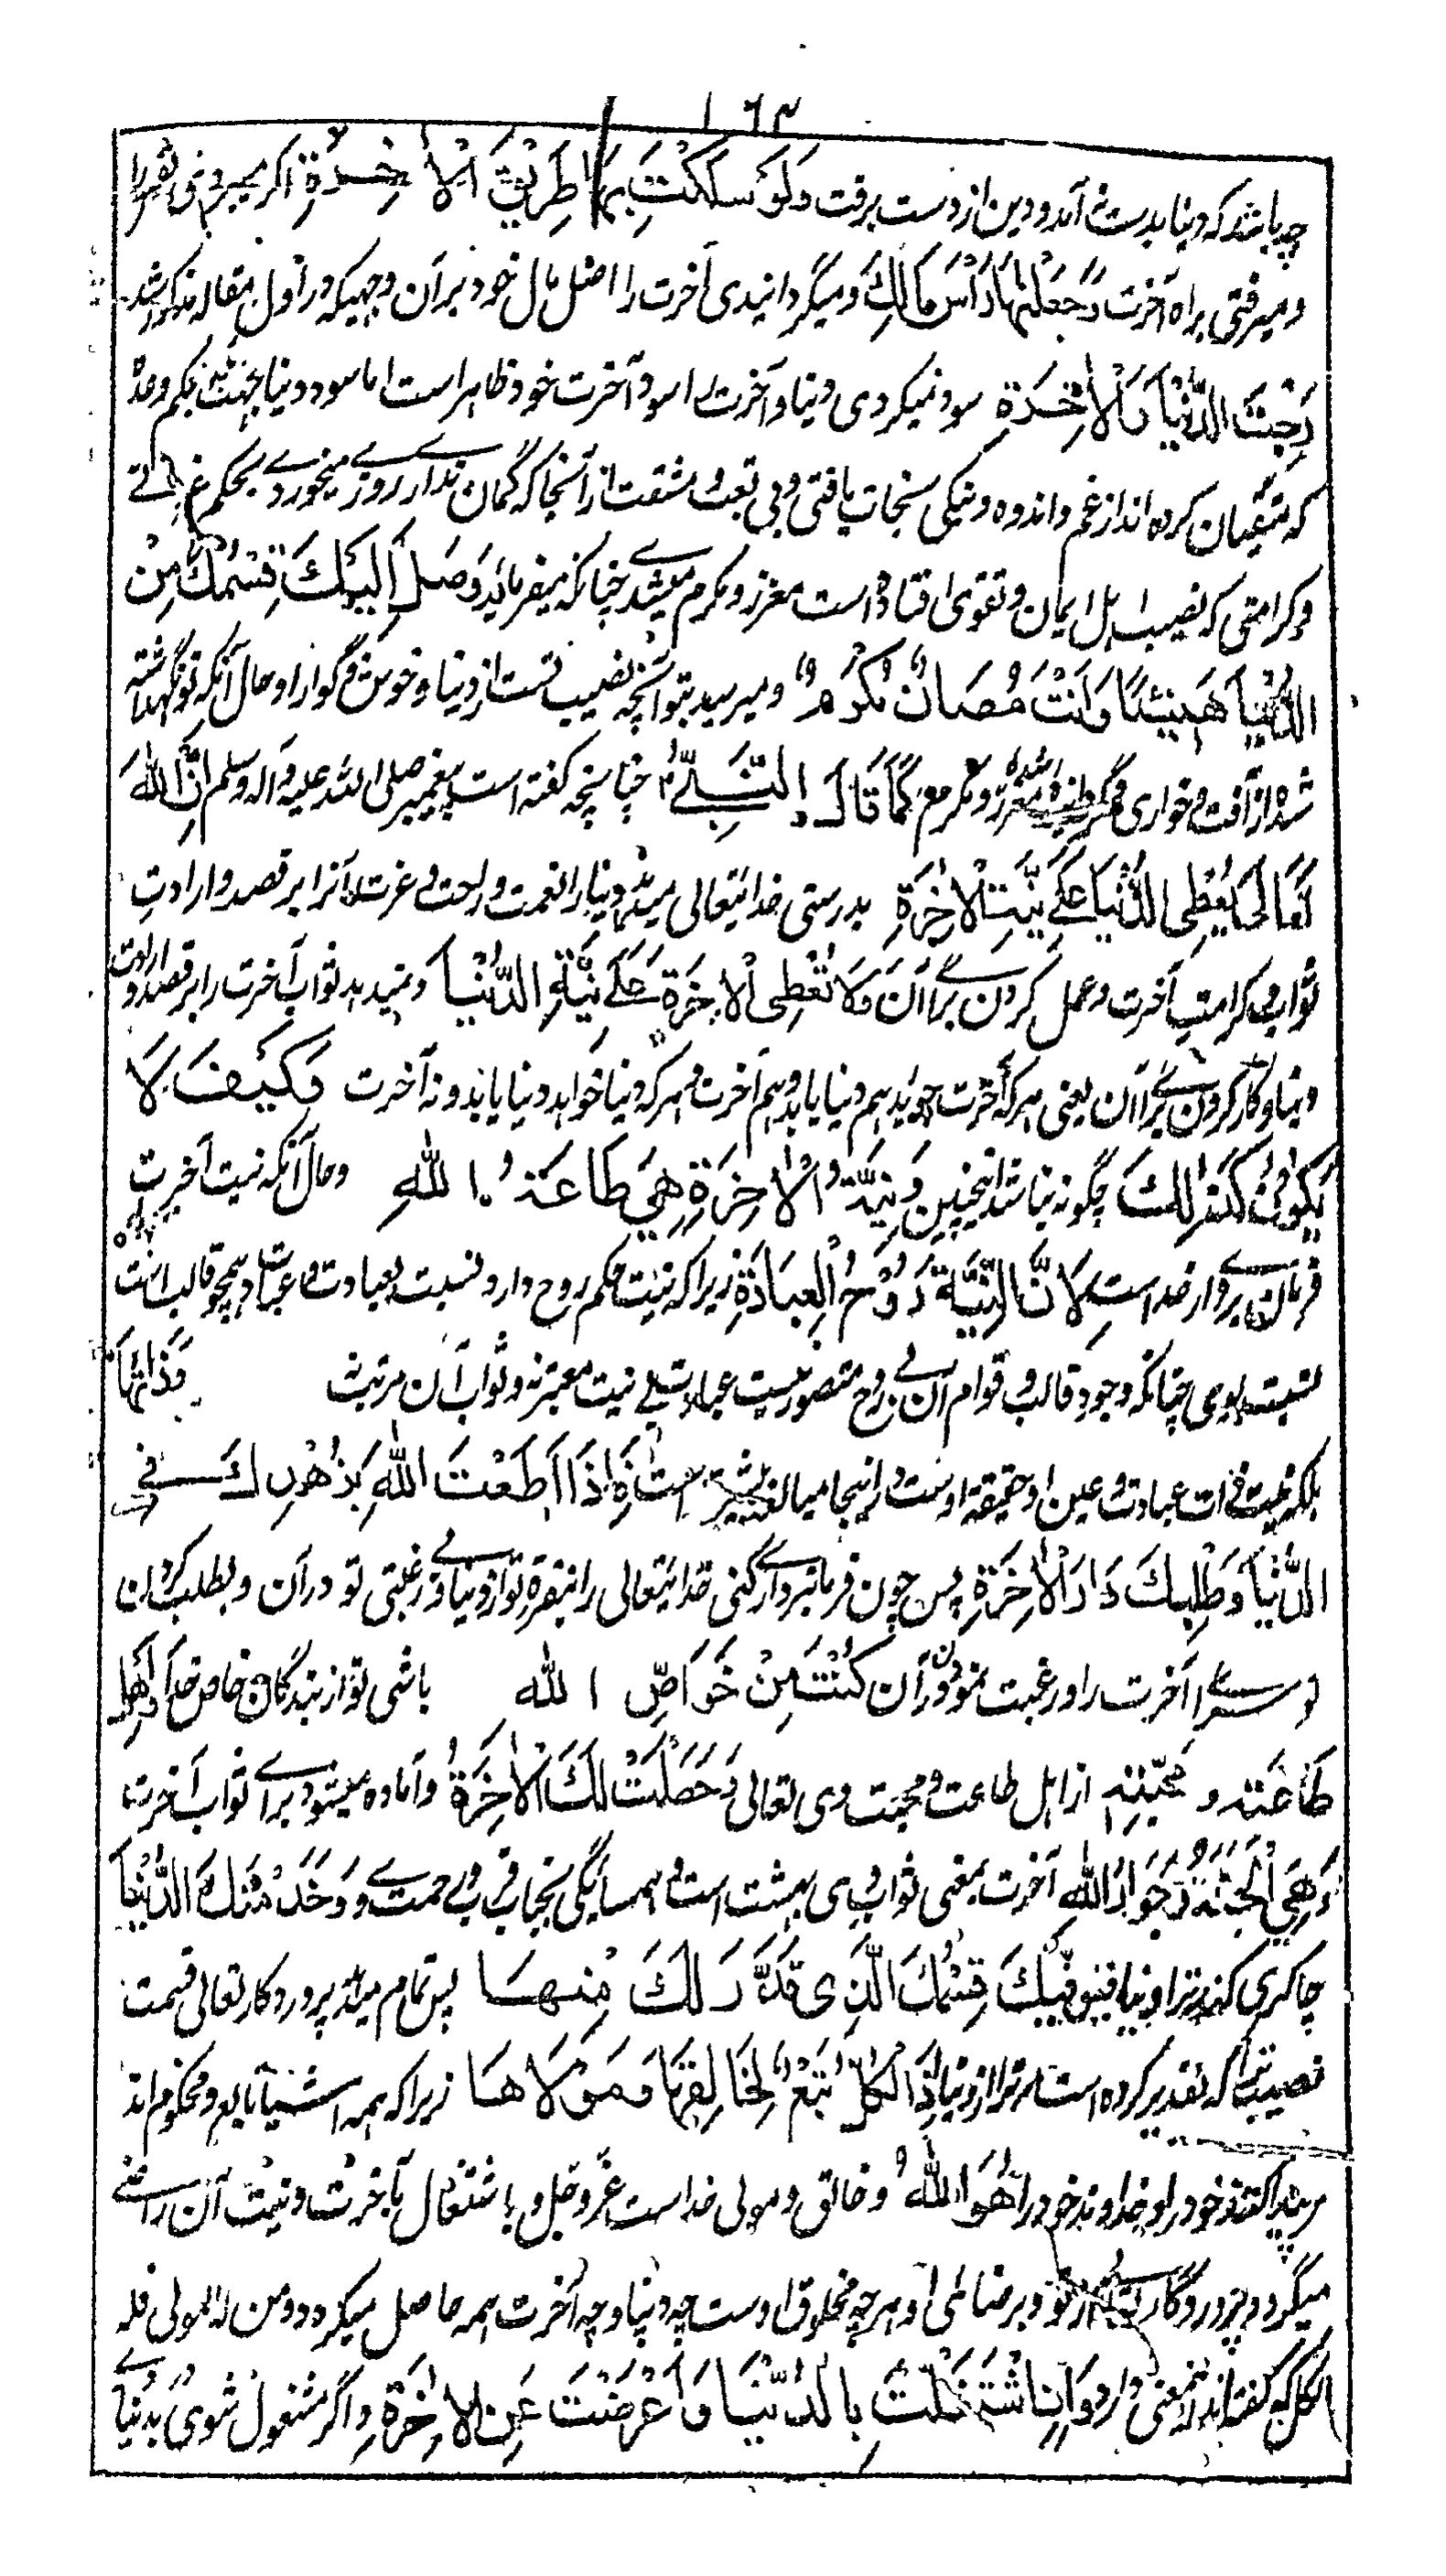 ١٦٣
چه باشد که دنیا بدست نه آمد و دین از دست برفت وَلَوْ سَلَكْتَ بِهَا طَرِيْقَ الْاٰخِرَةِ اگر میبردی نفس را
و میرفتی براه آخرت وَجَعَلْتَهَا رَأْسَ مَالِكَ و میگردانیدی آخرت را اصل مال خود بر آن وجهیکه در اول مقاله مذکور شد
رَبِحْتَ الدُّنْيَا وَالْاٰخِرَةِ سود میکردی دنیا و آخرت را سود آخرت خود ظاهر است اما سود دنیا بجهت بحکم وعده
که متقیان کرده اند از غم و اندوه و نیکی نجات یافتی و بی تعب و مشقت از آنجا که گمان نداری روزی میخوردی بحکم عزتی
و کرامتی که نصیب اهل ایمان و تقوی افتاده است معزز و مکرم میشدی چنانکه میفرماید وَصَلَ إِلَيْكَ قِسْمُكَ مِنَ
الدُّنْيَا هَنِيْئًا وَاَنْتَ مُصَانٌ مُكَرَّمٌ و میرسید بتو آنچه نصیب تست از دنیا و خوش و گوارا و حال آنکه تو نگهداشته
شده از آفت و خواری و معزز و مکرم مع كَمَا قَالَ النَّبِيُّ چنانچه گفته است پیغمبر صلی الله علیه و آله وسلم اِنَّ اللهَ
تَعَالٰى يُعْطِى الدُّنْيَا عَلٰى نِيَّتِ الْاٰخِرَةِ بدرستی خدایتعالی میدهد دنیا را نعمت و راحت و عزت آنرا بر قصد و ارادت
ثواب و کرامت آخرت و عمل کردن برای آن وَلَا تُعْطِى الْاٰخِرَةَ عَلٰى نِيَّةِ الدُّنْيَا و نمیدهد ثواب آخرت را بر قصد و ارادت
دنیا و کار کردن برای آن یعنی هر که آخرت جوید هم دنیا یابد و هم آخرت و هر که دنیا خواهد دنیا یابد و نه آخرت وَكَيْفَ لَا
يَكُوْنُ كَذٰلِكَ چگونه نباشد اینچنین وَنِيَّةُ الْاٰخِرَةِ هِيَ طَاعَةُ اللهِ و حال آنکه نیت آخرت
فرمان برداری خداست لِاَنَّ النِّيَّةَ رُوْحُ الْعِبَادَةِ زیرا که نیت حکم روح دارد نسبت بعبادت و عبادت همچو قالب است
نسبت بوی چنانکه وجود قالب و قوام آن بی روح متصور نیست عبادت بی نیت معتبر نه و ثواب آن مرتب نه وَذَاتُهَا
بلکه نیت ذات عبادت و عین او حقیقة اوست و اینجا مبالغه بیشتر است فَاِذَا اَطَعْتَ اللهَ بِزُهْدِكَ فِى
الدُّنْيَا وَطَلَبِكَ دَارَ الْاٰخِرَةِ پس چون فرمانبرداری کنی خدایتعالی را بنفرة تو از دنیا و بی رغبتی تو در آن و بطلب کردن
تو سرای آخرت را و رغبت نمودن در آن كُنْتَ مِنْ خَوَاصِّ اللهِ باشی تو از بندگان خاص خدا وَاَهْلِ
طَاعَتِهِ وَ مَحَبَّتِهِ از اهل طاعت و محبت وی تعالی وَحَصَلَتْ لَكَ الْاٰخِرَةُ و آماده میشود برای ثواب آخرت
وَهِيَ الْجَنَّةُ وَجَوَارُ اللهِ آخرت بمعنی ثواب وی بهشت است و همسایگی بجناب قرب و رحمت وی وَخَدَمَتْكَ الدُّنْيَا
چاکری کند ترا دنیا فَيُوَفِّيْكَ قِسْمَكَ الَّذِى قَدَّرَ لَكَ مِنْهَا پس تمام میدهد پروردگار تعالی قسمت
نصیب ترا که تقدیر کرده است مر ترا از دنیا اِذِ الْكُلُّ تَبَعٌ لِخَالِقِهَا وَمَوْلَاهَا زیرا که همه اشیا تابع و محکوم اند
مر پیدا کننده خود را و خداوند خود را هُوَ اللهُ و خالق و مولی خداست عز و جل و باشتغال بآخرت و نیت آن راضی
میگردد پروردگار تعالی از تو و برضای او هر چه مخلوق اوست چه دنیا و چه آخرت همه حاصل میگردد و من له المولی فله
الکل که گفته اند این معنی دارد وَاِنِ اشْتَغَلْتَ بِالدُّنْيَا وَاَعْرَضْتَ عَنِ الْاٰخِرَةِ و اگر مشغول شوی بدنیا